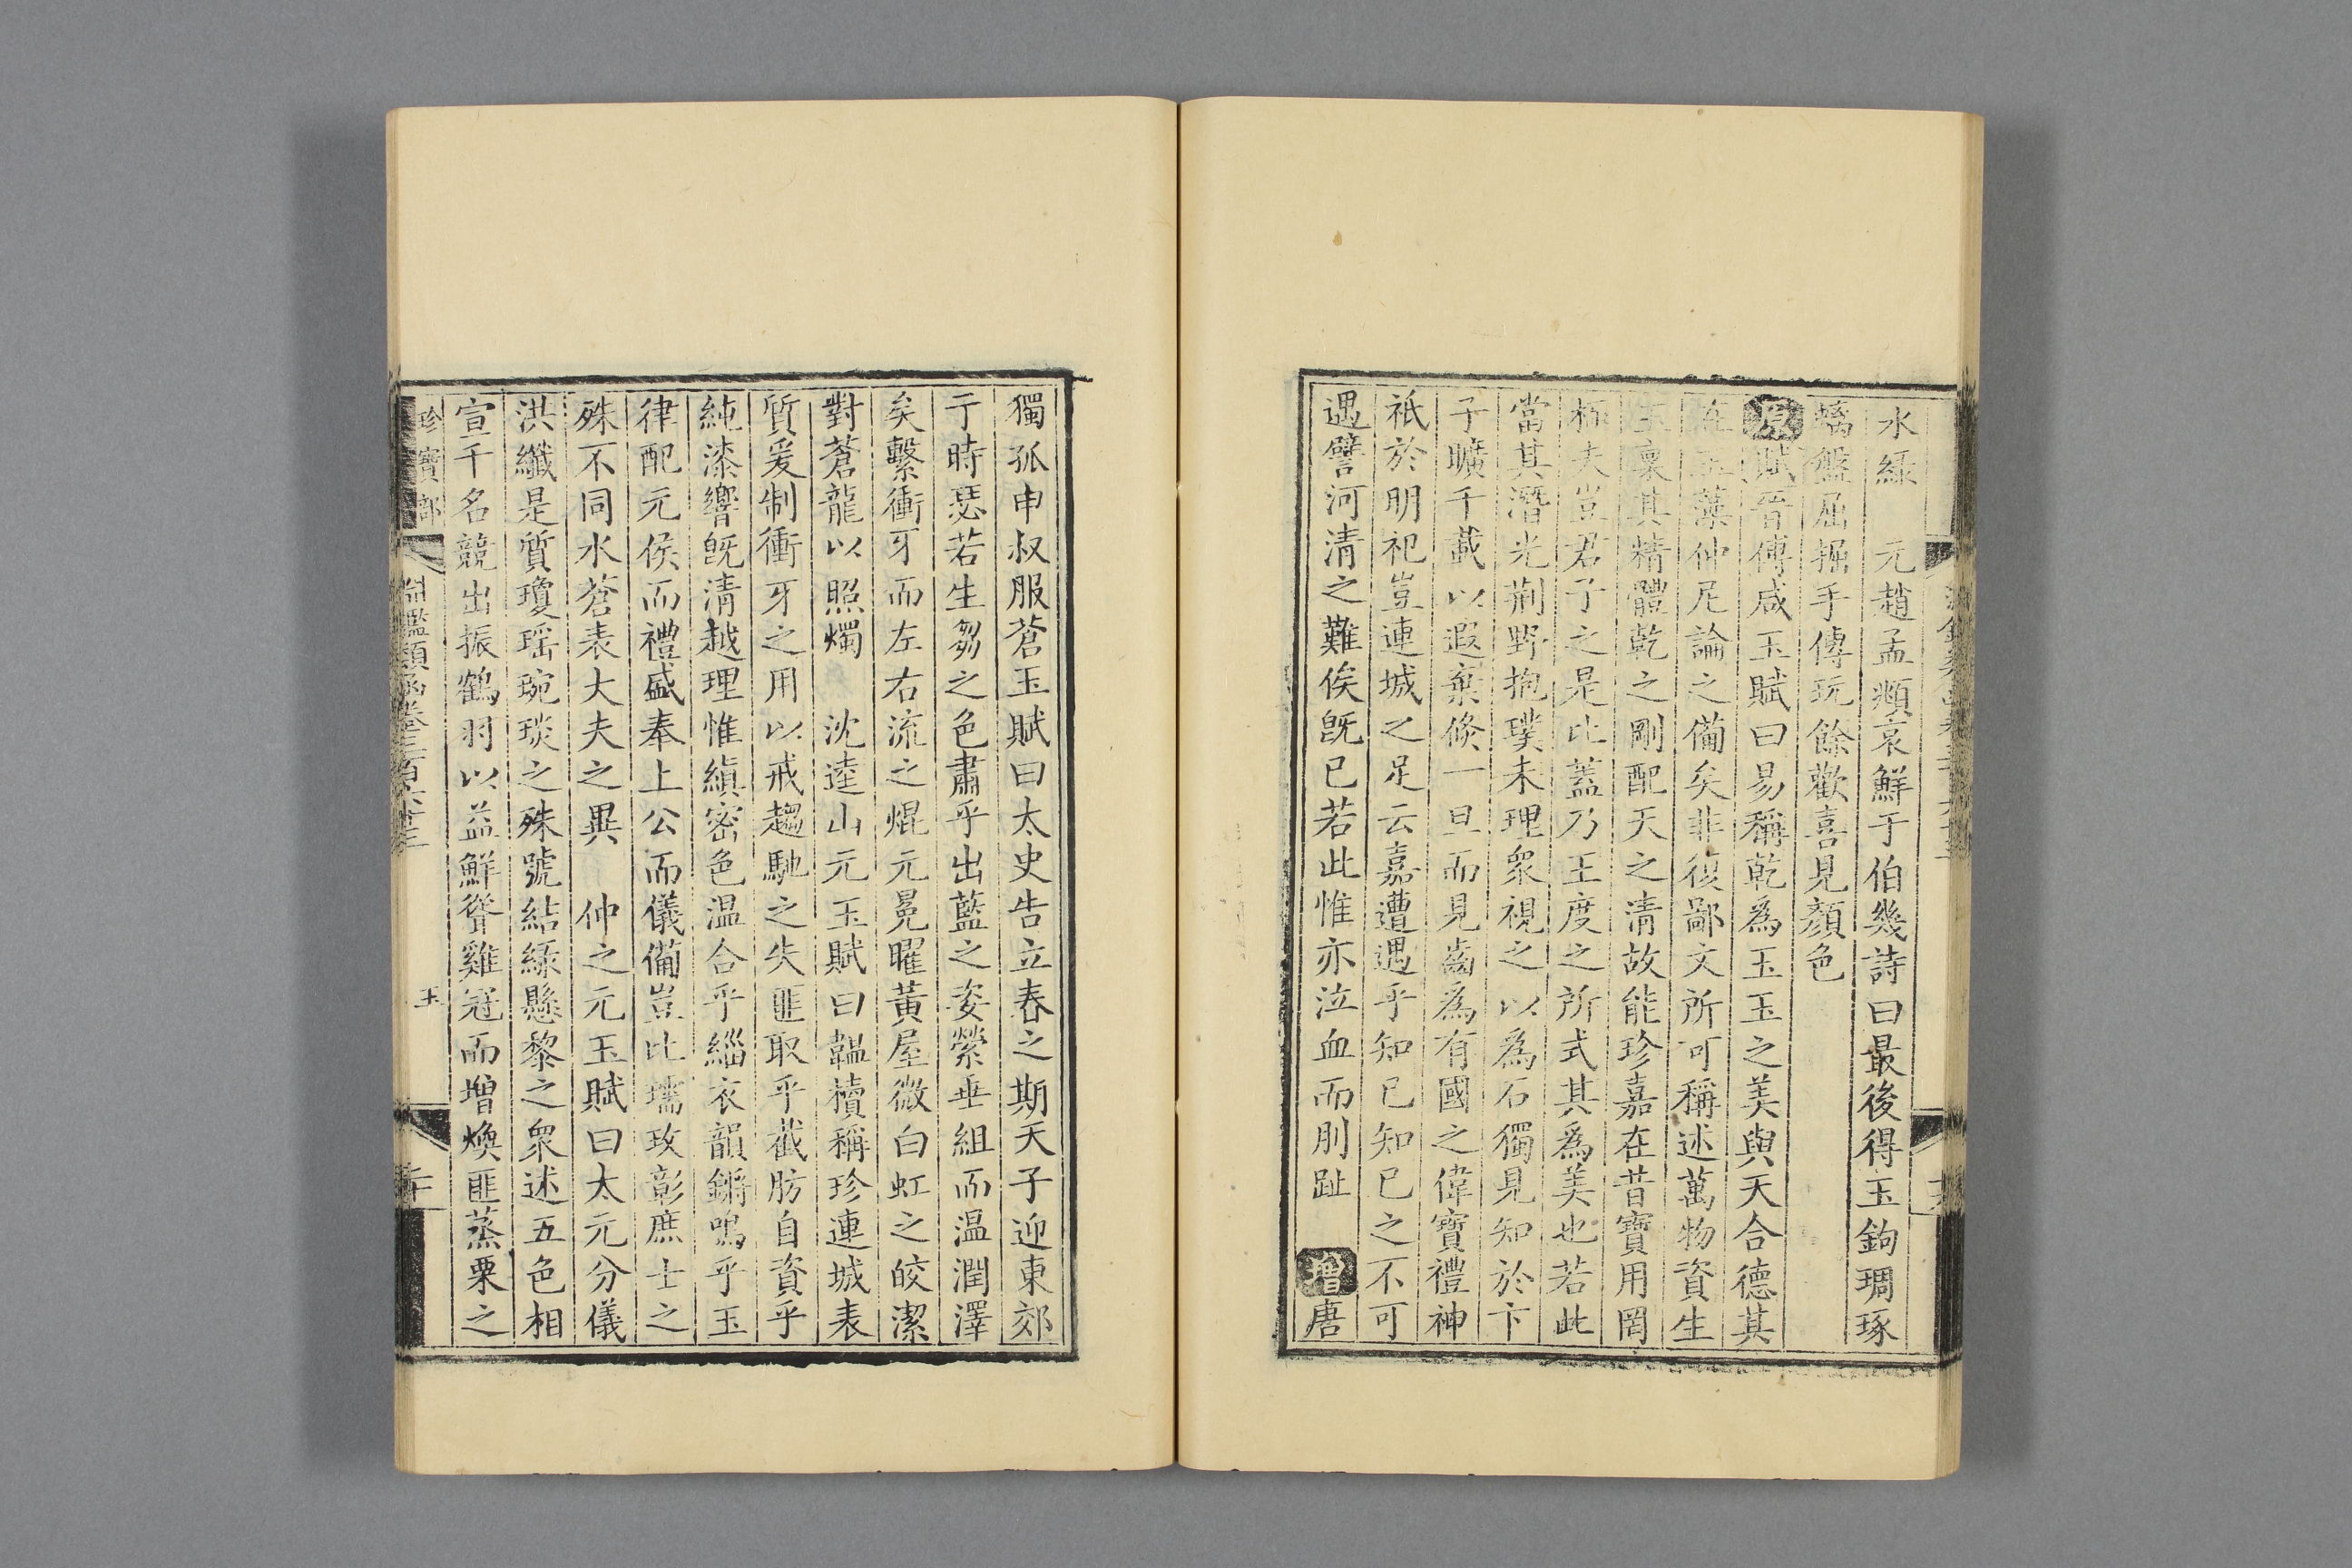 水緑　元趙孟頫哀鮮于伯幾詩曰最後得玉鉤琱琢
螭盤屈掘手傅玩餘歡喜見顏色
原賦晉傅咸玉賦曰易稱乾為玉玉之美與天合德其
在玉藻仲尼論之備矣非復鄙文所可稱述萬物資生
玉稟其精體乾之剛配天之清故能珍嘉在昔寶用罔
極夫豈君子之是比葢乃王度之所式其為美也若此
當其潛光荆野抱璞未理眾視之以為石獨見知於卞
子曠千載以遐棄倏一旦而見齒為有國之偉寶禮神
祇於明祀豈連城之足云嘉遭遇乎知已知已之不可
遇譬河清之難俟旣已若此惟亦泣血而刖趾　增唐
獨孤申叔服蒼玉賦曰太史告立春之期天子迎東郊
于時瑟若生芻之色肅乎出藍之姿縈垂組而温潤澤
矣繫衝牙而左右流之焜元冕曜黃屋微白虹之皎潔
對蒼龍以照燭　沈逵山元玉賦曰韞櫝稱珍連城表
質爰制衝牙之用以戒趨馳之失匪取乎截肪自資乎
純漆響旣清越理惟縝密色温合乎緇衣韻鏘鳴乎玉
律配元侯而禮盛奉上公而儀備豈比瓀玫彰庶士之
殊不同水蒼表大夫之異　仲之元玉賦曰太元分儀
洪纖是質瓊瑶琬琰之殊號結綠懸黎之眾述五色相
宣千名競出振鶴羽以益鮮聳雞冠而增煥匪蒸栗之
珍寶部　淵鑑類函卷三百六十三　玉　二十